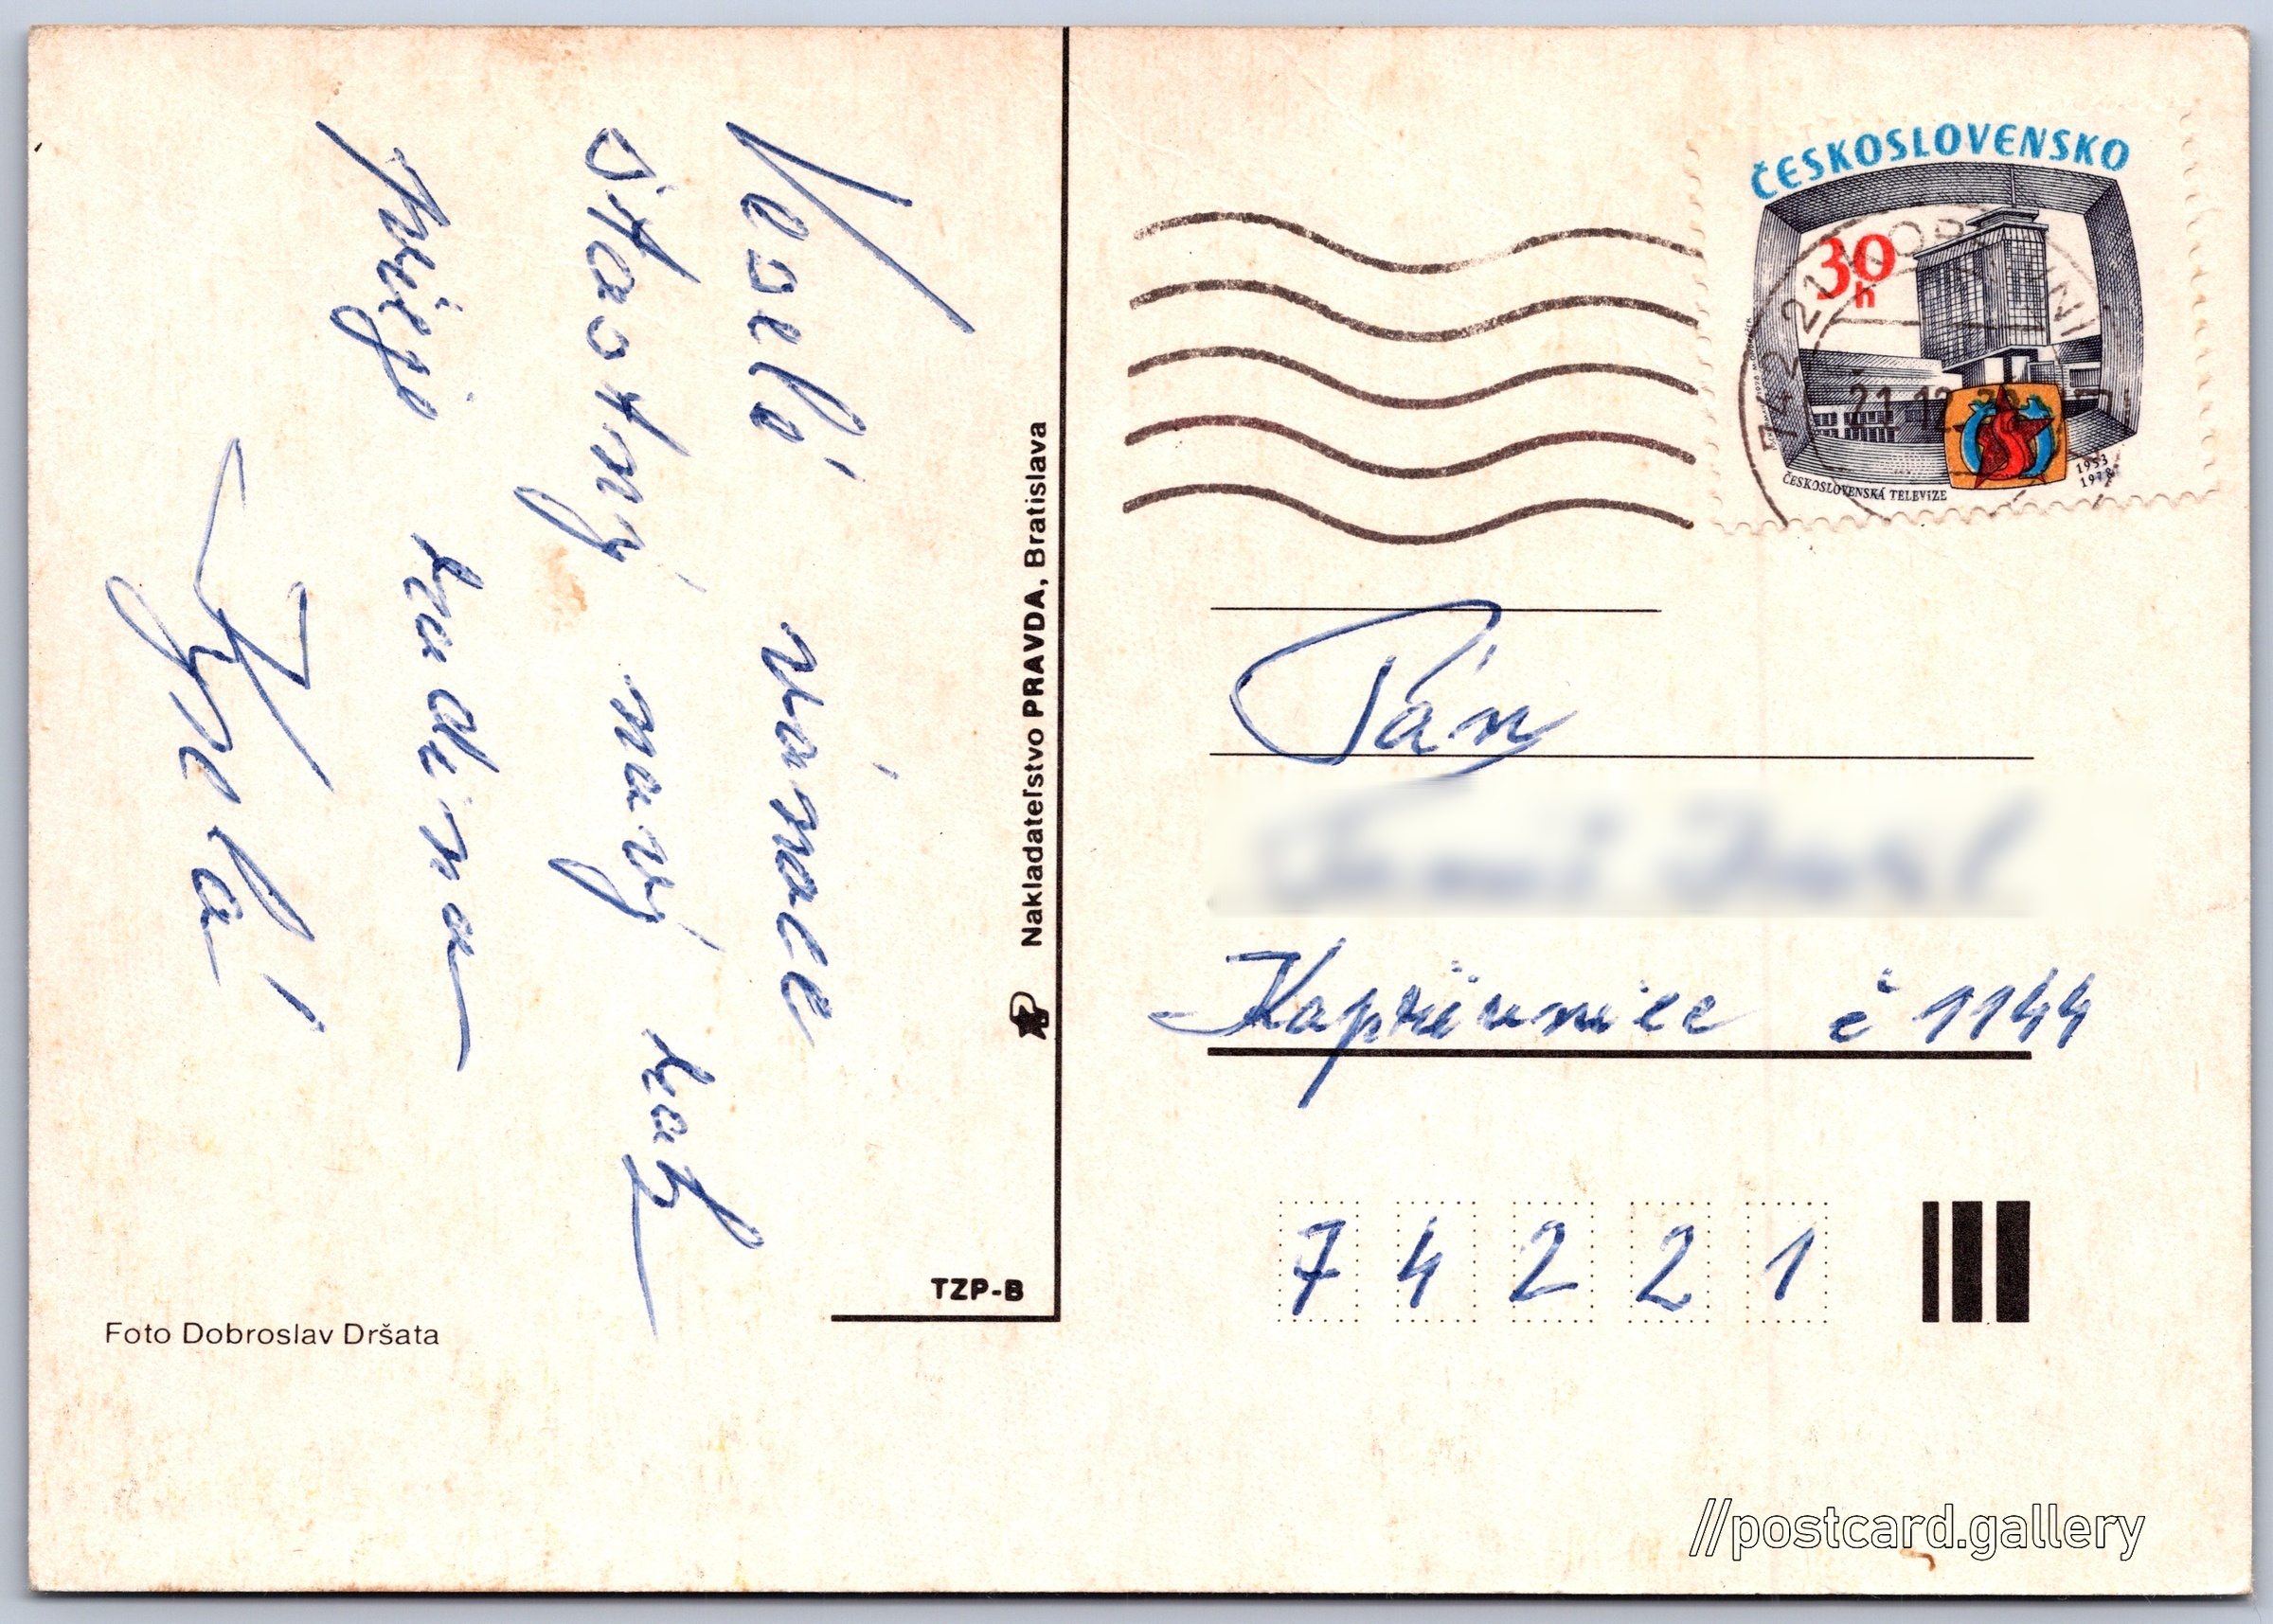 Veselé vánoce
šťastný nový rok
přeje rodina
Kyselá
Nakladateľstvo PRAVDA, Bratislava
TZP-B
Foto Dobroslav Dršata
ČESKOSLOVENSKO
30
h
ČESKOSLOVENSKÁ TELEVIZE
1953
1978
742 21 KOP
21.12
Pán
Kopřivnice č 1144
74221
//postcard.gallery